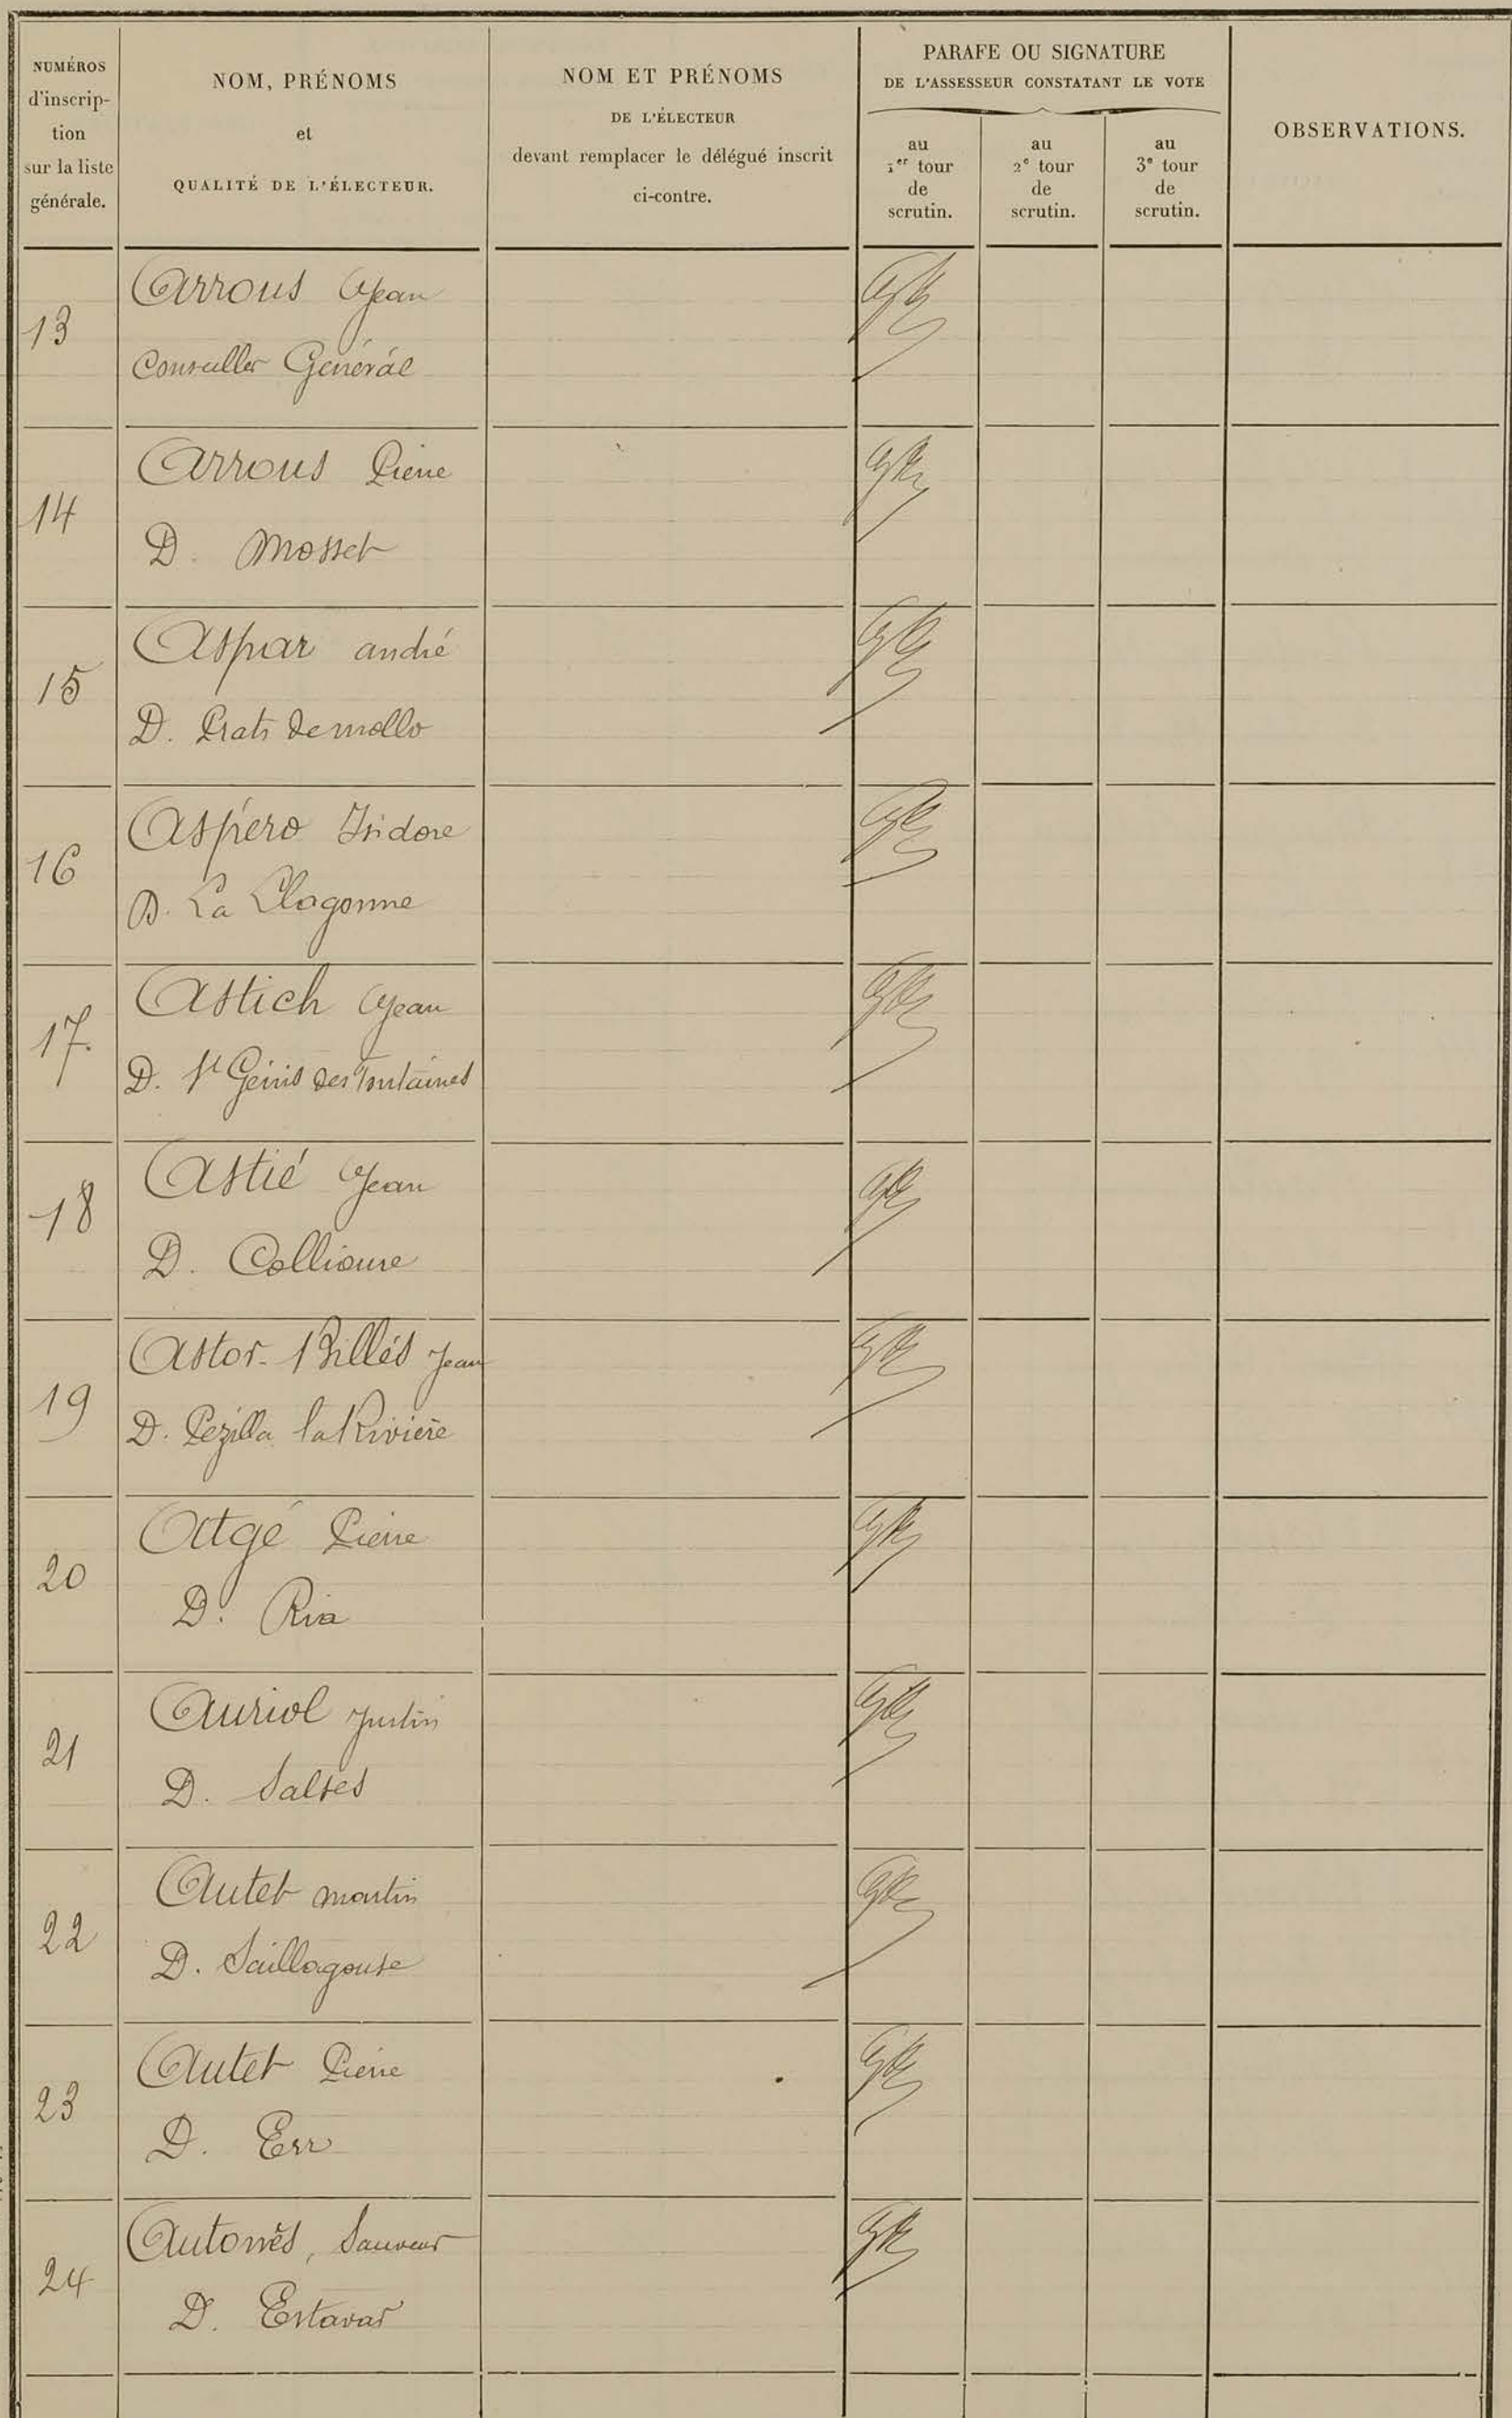 NUMÉROS
d'inscrip-
tion
sur la liste
générale.
NOM, PRÉNOMS
et
QUALITÉ DE L'ÉLECTEUR.
NOM ET PRÉNOMS
DE L'ÉLECTEUR
devant remplacer le délégué inscrit
ci-contre.
PARAFE OU SIGNATURE
DE L'ASSESSEUR CONSTATANT LE VOTE
au
1er tour
de
scrutin.
au
2e tour
de
scrutin.
au
3e tour
de
scrutin.
OBSERVATIONS.
13
Arrous Jean
Conseiller Général
14
Arrous Pierre
D. Mosset
15
Aspar andré
D. Prats de mollo
16
Aspero Isidore
D. La Llagonne
17.
Astich Jean
D. St Génis des Fontaines
18
Astié Jean
D. Collioure
19
Astor-Billés Jean
D. Pezilla la Rivière
20
Atgé Pierre
D. Ria
21
Auriol Justin
D. Salses
22
Autet martin
D. Saillagouse
23
Autet Pierre
D. Err
24
Autonès, Sauveur
D. Estavar